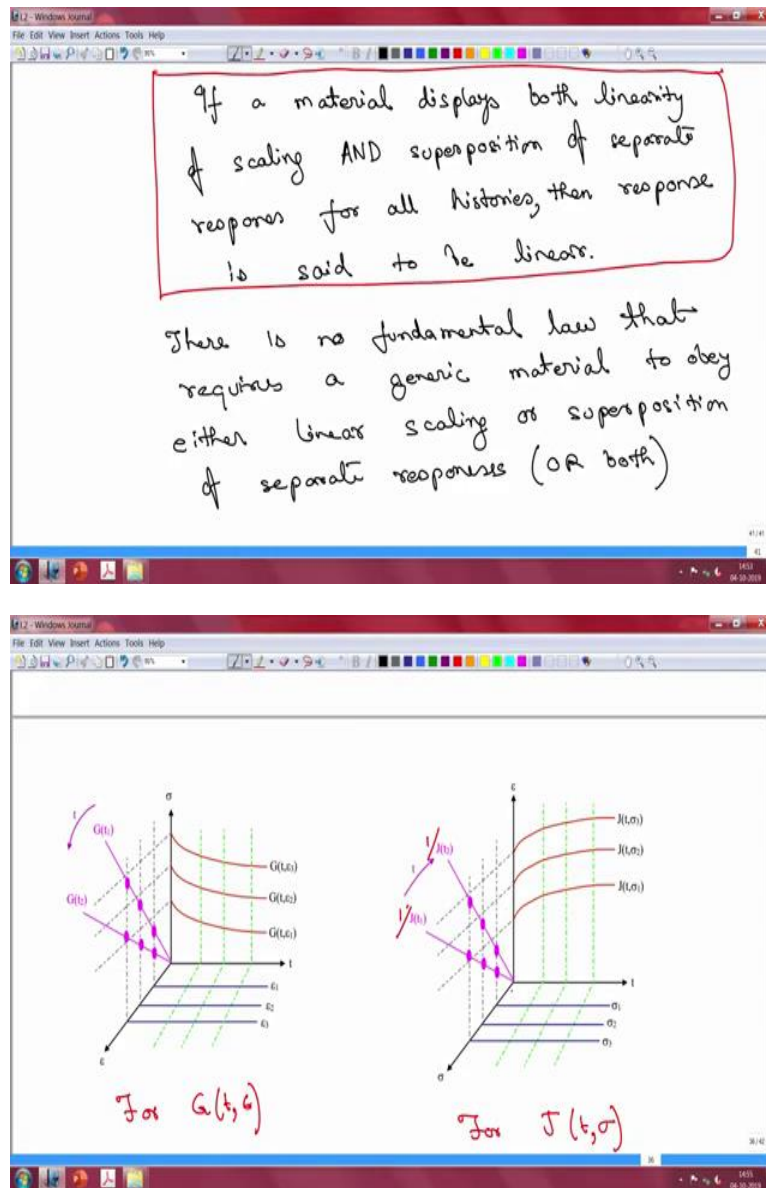 L2 - Windows Journal
File Edit View Insert Actions Tools Help
If a material displays both linearity
of scaling AND superposition of separate
respones for all histories, then response
is said to be linear.
There is no fundamental law that
requires a generic material to obey
either linear scaling or superposition
of separate responses (OR both)
41/41
41
14:53
04-10-2019
L2 - Windows Journal
File Edit View Insert Actions Tools Help
σ
t
G(t₁)
G(t₂)
G(t,ε₃)
G(t,ε₂)
G(t,ε₁)
t
ε₁
ε₂
ε₃
ε
For G(t,ε)
ε
1/J(t₂)
t
1/J(t₁)
J(t,σ₃)
J(t,σ₂)
J(t,σ₁)
t
σ₁
σ₂
σ₃
σ
For J(t,σ)
36/42
36
14:55
04-10-2019